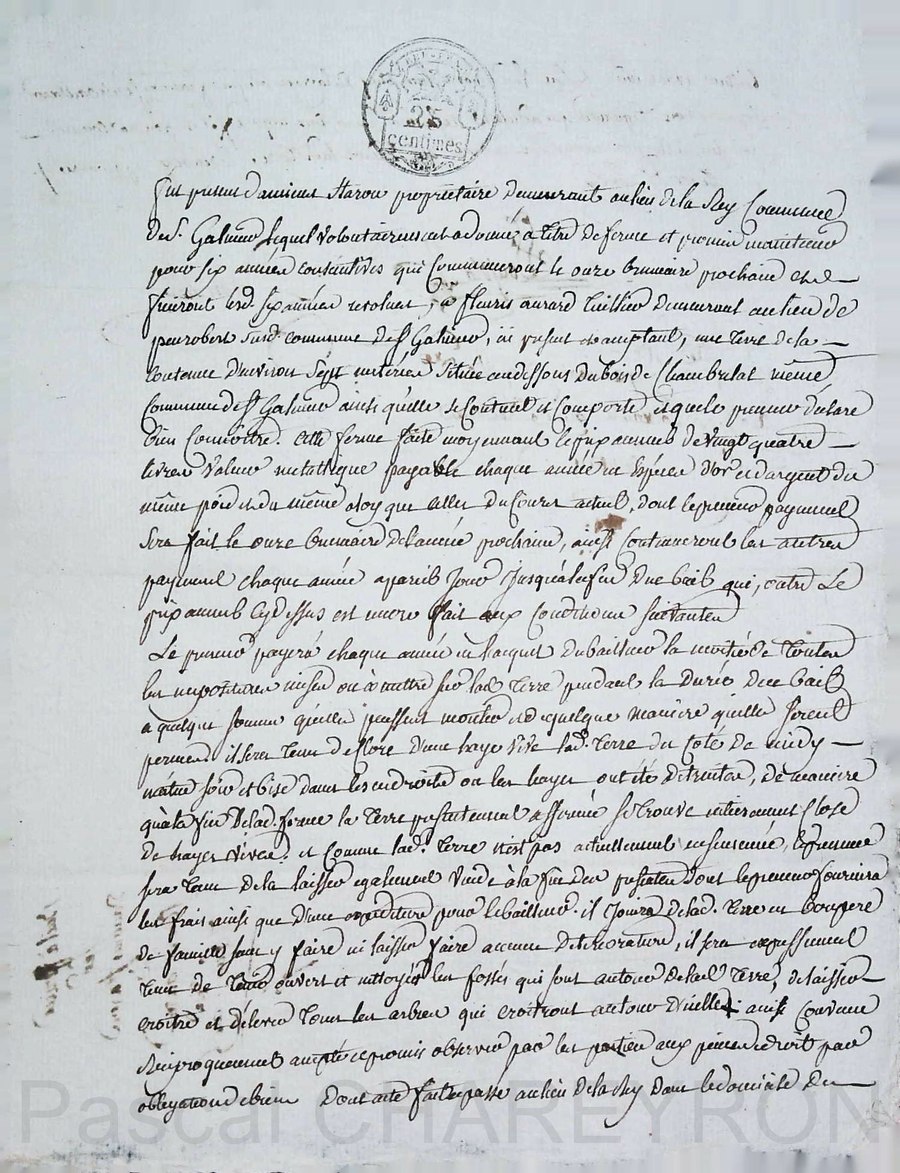 REP. FRA.
25
centimes
Fut present Damiens Staron proprietaire Demeurant au lieu de la Rey Commune
de St. Galmier lequel volontairement a donné a titre de ferme et promis maintenir
pour six années consecutives qui Commenceront le onze brumaire prochain et
finiront lesd. six années revolues, a fleuris demeurant au lieu de
penrobert susd. commune de St Galmier, ici present et acceptant, une terre de la
Contenue d'environ sept meterées située au dessous du bois de Chambulat même
Commune de St Galmier ainsi qu'elle se Contient et Comporte et que le preneur declare
bien Connoitre. Cette ferme faite moyennant le prix annuel de vingt quatre
livres valeur metallique payable chaque année en Espece d'or et d'argent du
même poid et du même aloy que celles du Cours actuel, dont le premier payement
sera fait le onze brumaire de l'année prochaine, ainsi Continueront les autres
payement chaque année a pareil jour jusqu'a la fin du bail qui, outre Le
prix annuel cy dessus est encore fait aux Conditions suivantes
Le preneur payera chaque année en l'acquit du bailleur la moitié de toutes
les impositions mises ou à mettre sur lad. terre pendant la durée du bail
a quelque somme qu'elles puissent monter et de quelque maniere qu'elles soient
perçues. il sera tenu de Clore d'une haye vive lad. terre du Coté de midy
matin soir et bise dans les endroits ou les hayes ont été détruites, de maniere
qu'a la fin de lad. ferme la terre presentement affermée se trouve entierement Close
de hayes vives. et Comme lad. terre n'est pas actuellement ensemencée, le preneur
sera tenu de la laisser egalement vuide à la fin des presentes dont le preneur fournira
les frais ainsi que d'une expedition pour le bailleur. il jouira de lad. terre en bon pere
de famille sans y faire ni laisser faire aucune deterioration, il sera expressement
tenu de tenir ouvert et nettoyés les fossés qui sont autour de lad. terre, de laisser
croitre et d'elever tous les arbres qui croitront autour d'icelle + ainsi Convenu
Reciproquement accepté et promis observer par les parties aux peines de droit par
obligation de biens Dont acte fait et passé au lieu de la Rey dans le domicile du
Pascal CHAREYRON